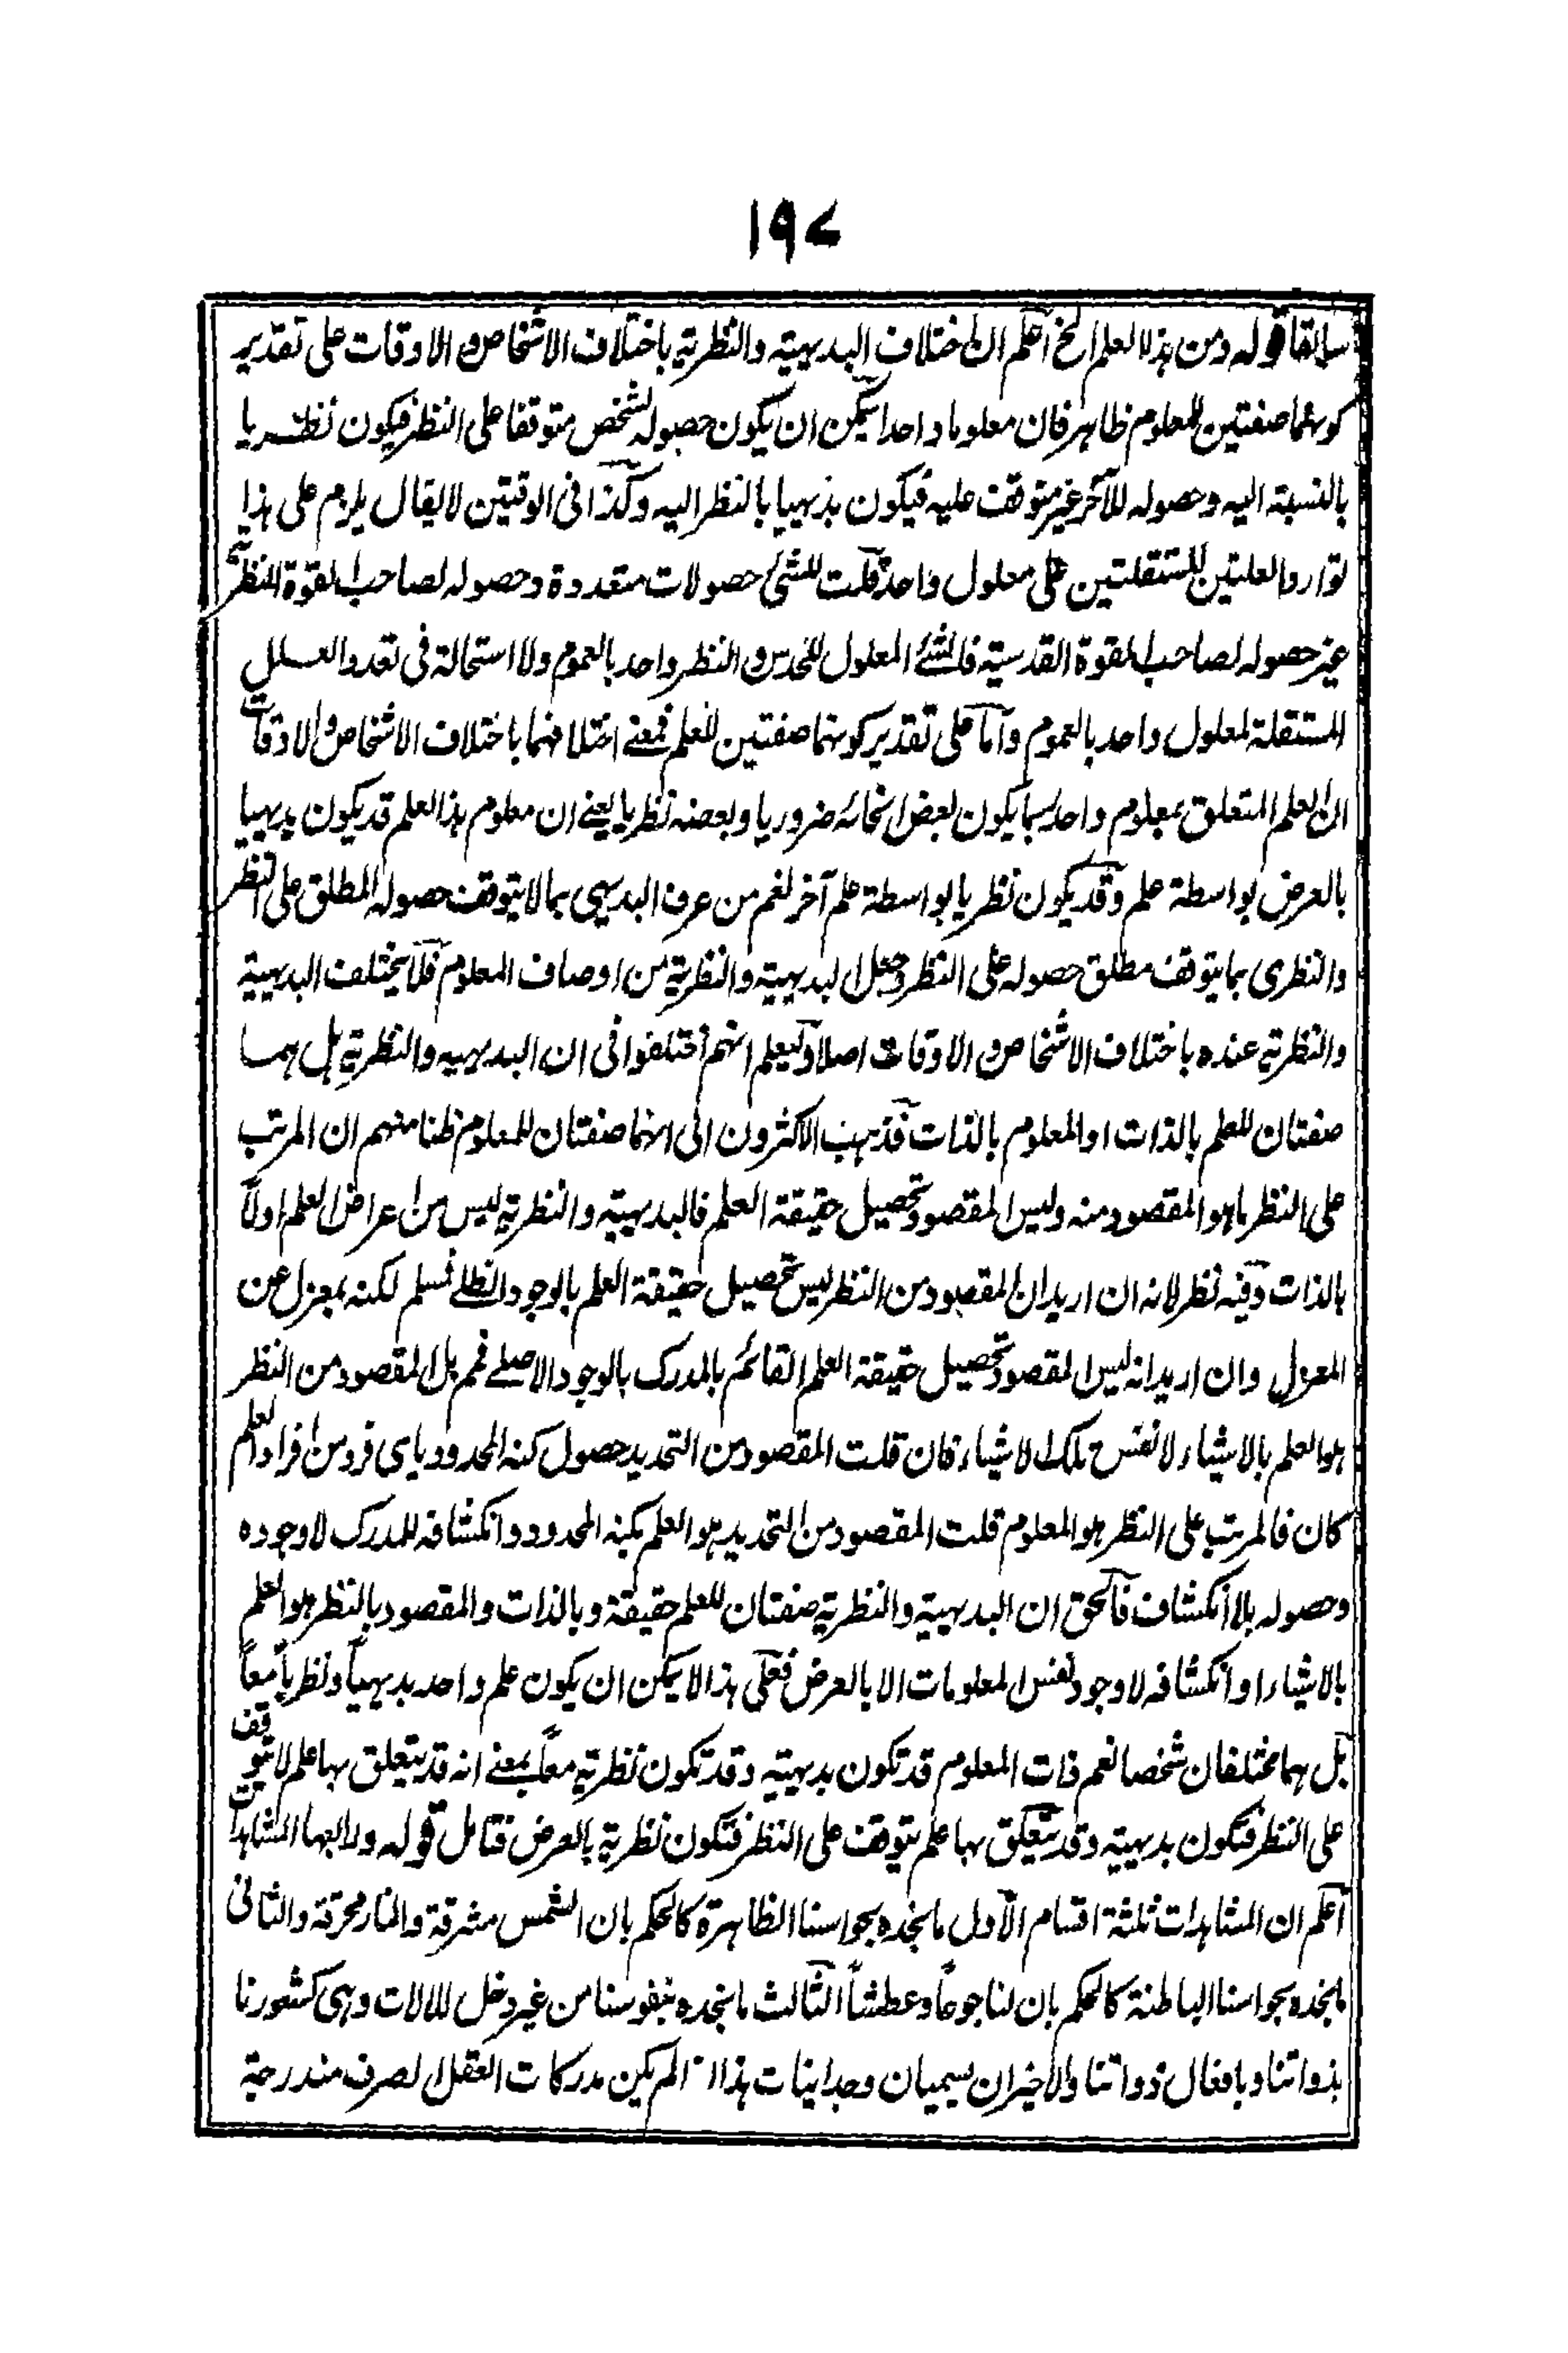 ١٩٧
سابقا قوله ومن هذا العلم الخ اعلم ان اختلاف البديهية والنظرية باختلاف الاشخاص والاوقات على تقدير
كونهما صفتين للمعلوم ظاهر فان معلوما واحدا يمكن ان يكون حصوله لشخص متوقفا على النظر فيكون نظريا
بالنسبة اليه وحصوله للآخر غير متوقف عليه فيكون بديهيا بالنظر اليه وكذا فى الوقتين لا يقال يلزم على هذا
توارد العلتين المستقلتين على معلول واحد قلت للشئ حصولات متعددة وحصوله لصاحب القوة النظرية
غير حصوله لصاحب القوة القدسية فالشئ المعلول للحدس والنظر واحد بالعموم ولا استحالة فى تعدد العلل
المستقلة لمعلول واحد بالعموم واما على تقدير كونهما صفتين للعلم فمعنے اختلافهما باختلاف الاشخاص والاوقات
ان العلم المتعلق بمعلوم واحد بما يكون بعض انحائه ضروريا وبعضه نظريا يعنے ان معلوم هذا العلم قد يكون بديهيا
بالعرض بواسطة علم وقد يكون نظريا بواسطة علم آخر نعم من عرف البديهى بما لا يتوقف حصوله المطلق على النظر
والنظرى بما يتوقف مطلق حصوله على النظر وجعل البديهية والنظرية من اوصاف المعلوم فلا يختلف البديهية
والنظرية عنده باختلاف الاشخاص والاوقات اصلا وليعلم انهم اختلفوا فى ان البديهيه والنظرية هل هما
صفتان للعلم بالذات او المعلوم بالذات فذهب الاكثرون الى انهما صفتان للمعلوم ظنا منهم ان المرتب
على النظر ما هو المقصود منه وليس المقصود تحصيل حقيقة العلم فالبديهية والنظرية ليس من اعراض العلم اولاً
بالذات وفيه نظر لانه ان اريد ان المقصود من النظر ليس تحصيل حقيقة العلم بالوجود الظلے فمسلم لكنه بمعزل عن
المعزل وان اريد انه ليس المقصود تحصيل حقيقة العلم القائم بالمدرك بالوجود الاصلے فمم بل المقصود من النظر
هو العلم بالاشياء لا نفس تلك الاشياء فان قلت المقصود من التحديد حصول كنه المحدود باى فرد من افراد العلم
كان فالمرتب على النظر هو المعلوم قلت المقصود من التحديد هو العلم بكنه المحدود وانكشافه للمدرك لا وجوده
وحصوله بلا انكشاف فالحق ان البديهية والنظرية صفتان للعلم حقيقة وبالذات والمقصود بالنظر هو العلم
بالاشياء او انكشافه لا وجود نفس المعلومات الا بالعرض فعلى هذا لا يمكن ان يكون علم واحد بديهياً ونظرياً معاً
بل هما مختلفان شخصا نعم ذات المعلوم قد تكون بديهية وقد تكون نظرية معاً بمعنے انه قد يتعلق بها علم لا يتوقف
على النظر فتكون بديهية وقد يتعلق بها علم يتوقف على النظر فتكون نظرية بالعرض فتامل قوله ورابعها المشاهدات
اعلم ان المشاهدات ثلثة اقسام الاول ما نجده بحواسنا الظاهرة كالحكم بان الشمس مشرقة والنار محرقة والثانى
ما نجده بحواسنا الباطنة كالحكم بان لنا جوعاً وعطشاً الثالث ما نجده بنفوسنا من غير دخل للالات وهى كشعورنا
بذواتنا وبافعال ذواتنا والاخيران يسميان وجدانيات هذا لم يكن مدركات العقل الصرف مندرجة